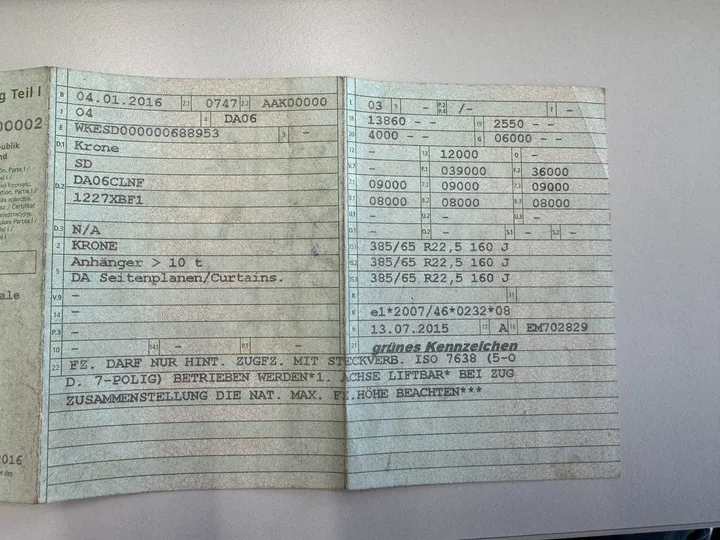 g Teil I
00002
publik
nd
ale
2016
B 04.01.2016 2.1 0747 2.2 AAK00000
J 04 4 DA06
E WKESD000000688953 3 -
D.1 Krone
SD
D.2 DA06CLNF
1227XBF1
D.3 N/A
2 KRONE
5 Anhänger > 10 t
DA Seitenplanen/Curtains.
V.9 -
14 -
P.3 -
10 - 14.1 - P.1 -
22 FZ. DARF NUR HINT. ZUGFZ. MIT STECKVERB. ISO 7638 (5-O
D. 7-POLIG) BETRIEBEN WERDEN*1. ACHSE LIFTBAR* BEI ZUG
ZUSAMMENSTELLUNG DIE NAT. MAX. FZ.HÖHE BEACHTEN***
L 03 9 - P.2 P.4 /- T -
18 13860 - - 19 2550 - -
20 4000 - - G 06000 - -
12 - 13 12000 Q -
- F.1 039000 F.2 36000
7.1 09000 7.2 09000 7.3 09000
8.1 08000 8.2 08000 8.3 08000
U.1 - U.2 - U.3 -
O.1 - O.2 - S.1 - S.2 -
15.1 385/65 R22,5 160 J
15.2 385/65 R22,5 160 J
15.3 385/65 R22,5 160 J
R - 11 -
K e1*2007/46*0232*08
6 13.07.2015 17 A 16 EM702829
21 grünes Kennzeichen